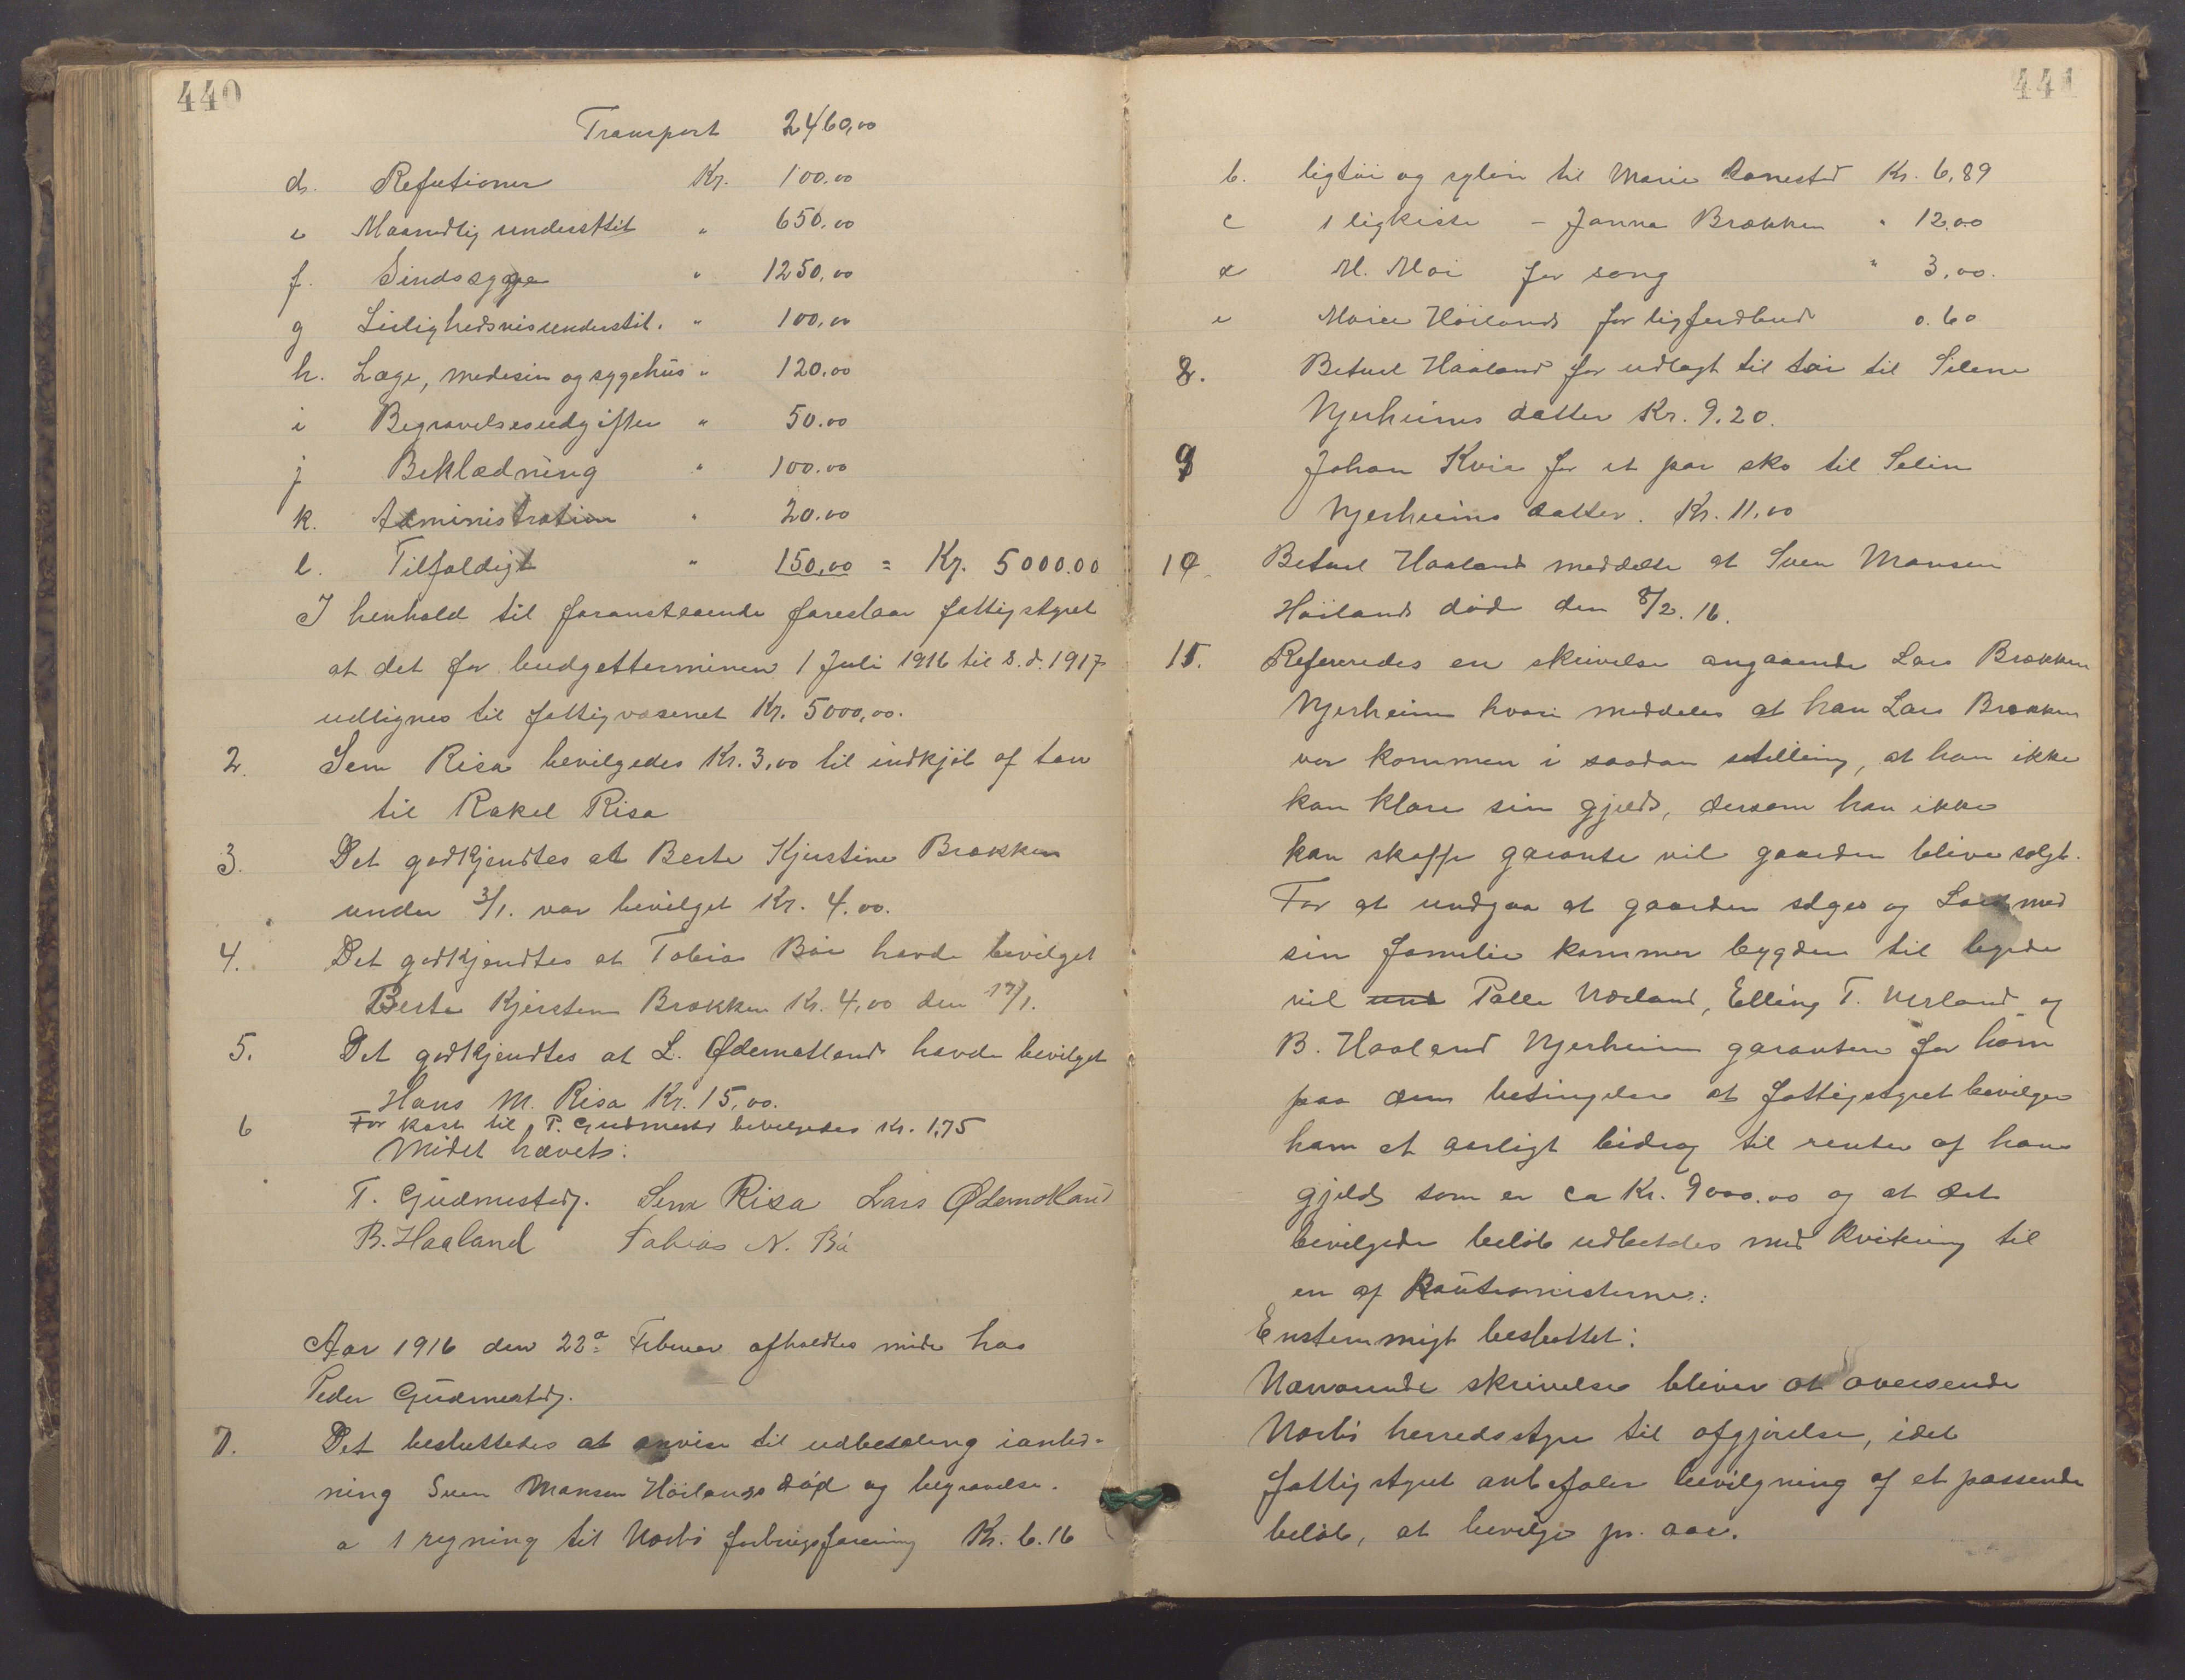 440
Transport 2460,00
d. Refutioner Kr. 100,00
e Maanedlig understtet " 650,00
f. Sindssyge " 1250,00
g Leilighedsvisunderstöt. " 100,00
h. Læge, medesin og sygehus " 120.00
i Begravelsesudgifter " 50.00
j Beklædning " 100.00
k. Administration " 20.00
l. Tilfældigt " 150,00 = Kr. 5000.00
I henhold til foranstaaende foreslaar fattigstyret
at det for budgetterminen 1 Juli 1916 til s.d. 1917
udlignes til fattigvæsenet Kr. 5000,00.
2. Sem Risa bevilgedes Kr. 3,00 til indkjöb af
til Rakel Risa
3. Det godkjendtes at Berte Kjerstine Brækken
under 3/1. var bevilget Kr. 4.00.
4. Det godkjendtes at Tobias Böe havde bevilget
Berte Kjersten Brækken Kr. 4,00 den 17/1.
5. Det godkjendtes at L. Ødemotland havde bevilget
Hans M. Risa Kr. 15,00.
6 For kost til P. Gudmestd bevilgedes Kr. 1,75
Mödet hævet:
T. Gudmestad. Sem Risa Lars Ødemotland
B. Haaland Tobias N. Bö
Aar 1916 den 22de Februar afholdtes möde hos
Peder Gudmestad.
7. Det besluttedes at anvise til udbetaling ianled-
ning Sven Monsen Höilands död og begravelse.
a 1 regning til Norbö forbrugsforening Kr. 6.16
441
b. ligtöi og til Marie Kr. 6,89
c 1 ligkiste - Janna Brækken " 12,00
d M. Moi for sang " 3,00.
e Marie Höiland for ligferdbud 0.60
8. Betuel Haaland for udlagt til töi til Selene
Njerheims datter Kr. 9.20.
9 Johan Kvia for et par sko til Selin
Njerheims datter. Kr. 11.00
10 Betuel Haaland meddelte at Sven Monsen
Höiland döde den 8/2. 16.
11. Refereredes en skrivelse angaaende Lars Brækken
Njerheim hvori meddeles at han Lars Brækken
var kommen i saadan stilling, at han ikke
kan klare sin gjeld, dersom han ikke
kan skaffe garante vil gaarden blive solgt.
For at undgaa at gaarden sælges og Lars med
sin familie kommer bygden til byrde
vil Palle Nærland, Elling T. Nærland og
B. Haaland Njerheim garantere for ham
paa den betingelse at fattigstyret bevilger
ham et aarligt bidrag til renter af hans
gjeld som er ca Kr. 9000.00 og at det
bevilgede belöb udbetales mod kvitering til
en af kautionisterne:
Enstemmigt besluttet:
Nærværende skrivelse bliver at oversende
Norbö herredsstyre til afgjörelse, idet
fattigstyret anbefaler bevilgning af et passende
belöb, at bevilge pr. aar.